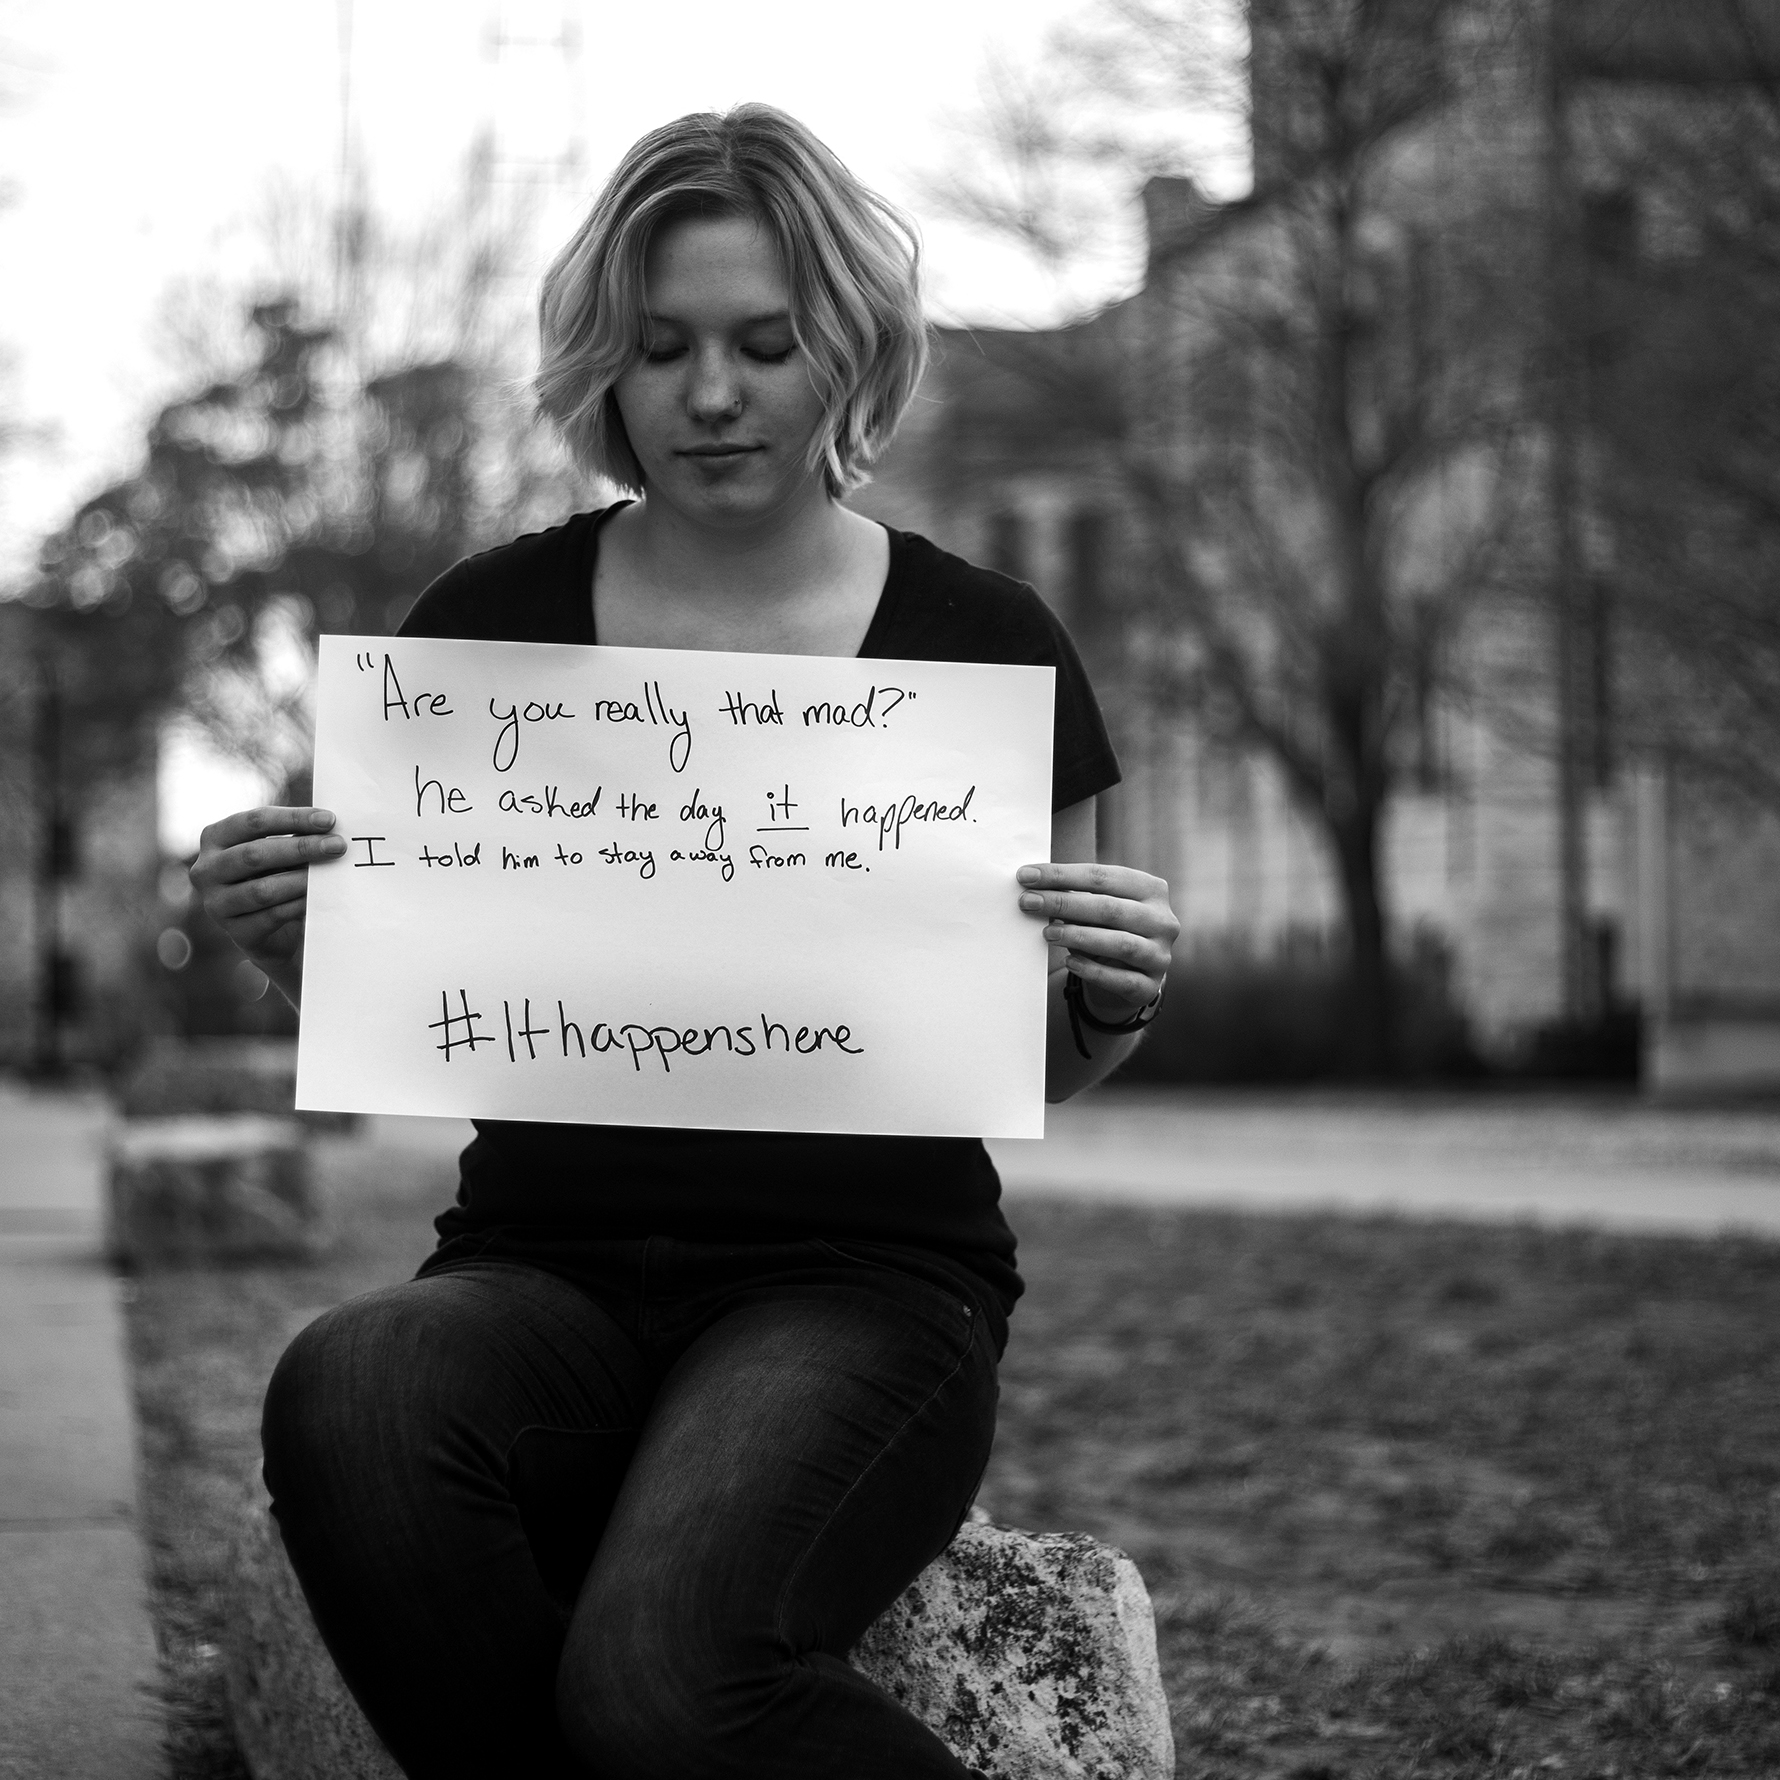 "Are you really that mad?"
he asked the day it happened.
I told him to stay away from me.
#Ithappenshere